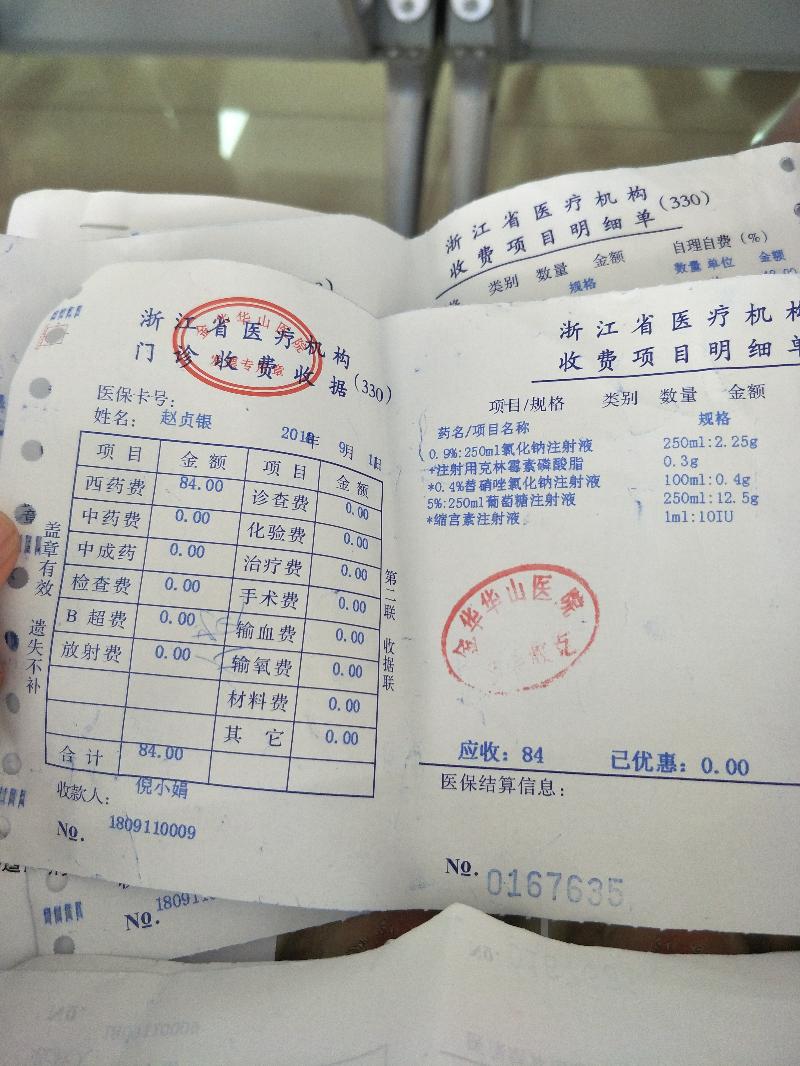 浙江省医疗机构
收费项目明细单 (330)
类别 数量 金额
自理自费(%)
规格
数量 单位 金额
浙江省医疗机构
门诊收费收据 (330)
金华华山医院
医保卡号:
姓名: 赵贞银
2018年 9月
项目 金额 项目 金额
西药费 84.00 诊查费 0.00
中药费 0.00 化验费 0.00
中成药 0.00 治疗费 0.00
检查费 0.00 手术费 0.00
B超费 0.00 输血费 0.00
放射费 0.00 输氧费 0.00
材料费 0.00
其它 0.00
合计 84.00
收款人: 倪小娟
No. 1809110009
盖章有效 遗失不补
第二联 收据联
浙江省医疗机构
收费项目明细单
项目/规格 类别 数量 金额
药名/项目名称 规格
0.9%:250ml氯化钠注射液 250ml:2.25g
+注射用克林霉素磷酸脂 0.3g
*0.4%替硝唑氯化钠注射液 100ml:0.4g
5%:250ml葡萄糖注射液 250ml:12.5g
*缩宫素注射液 1ml:10IU
金华华山医院
应收: 84 已优惠: 0.00
医保结算信息:
No. 0167635
No.